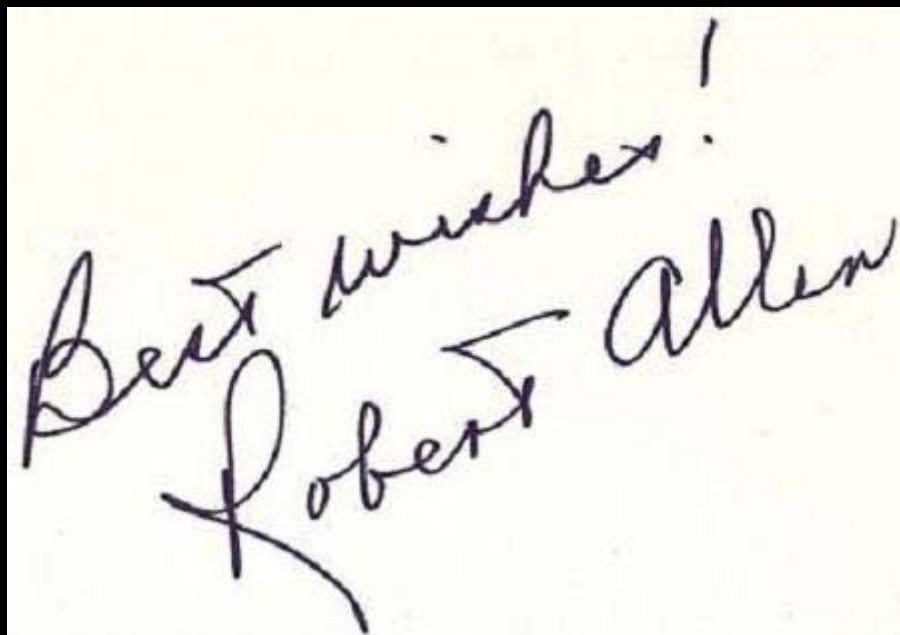 Best wishes!
Robert Allen